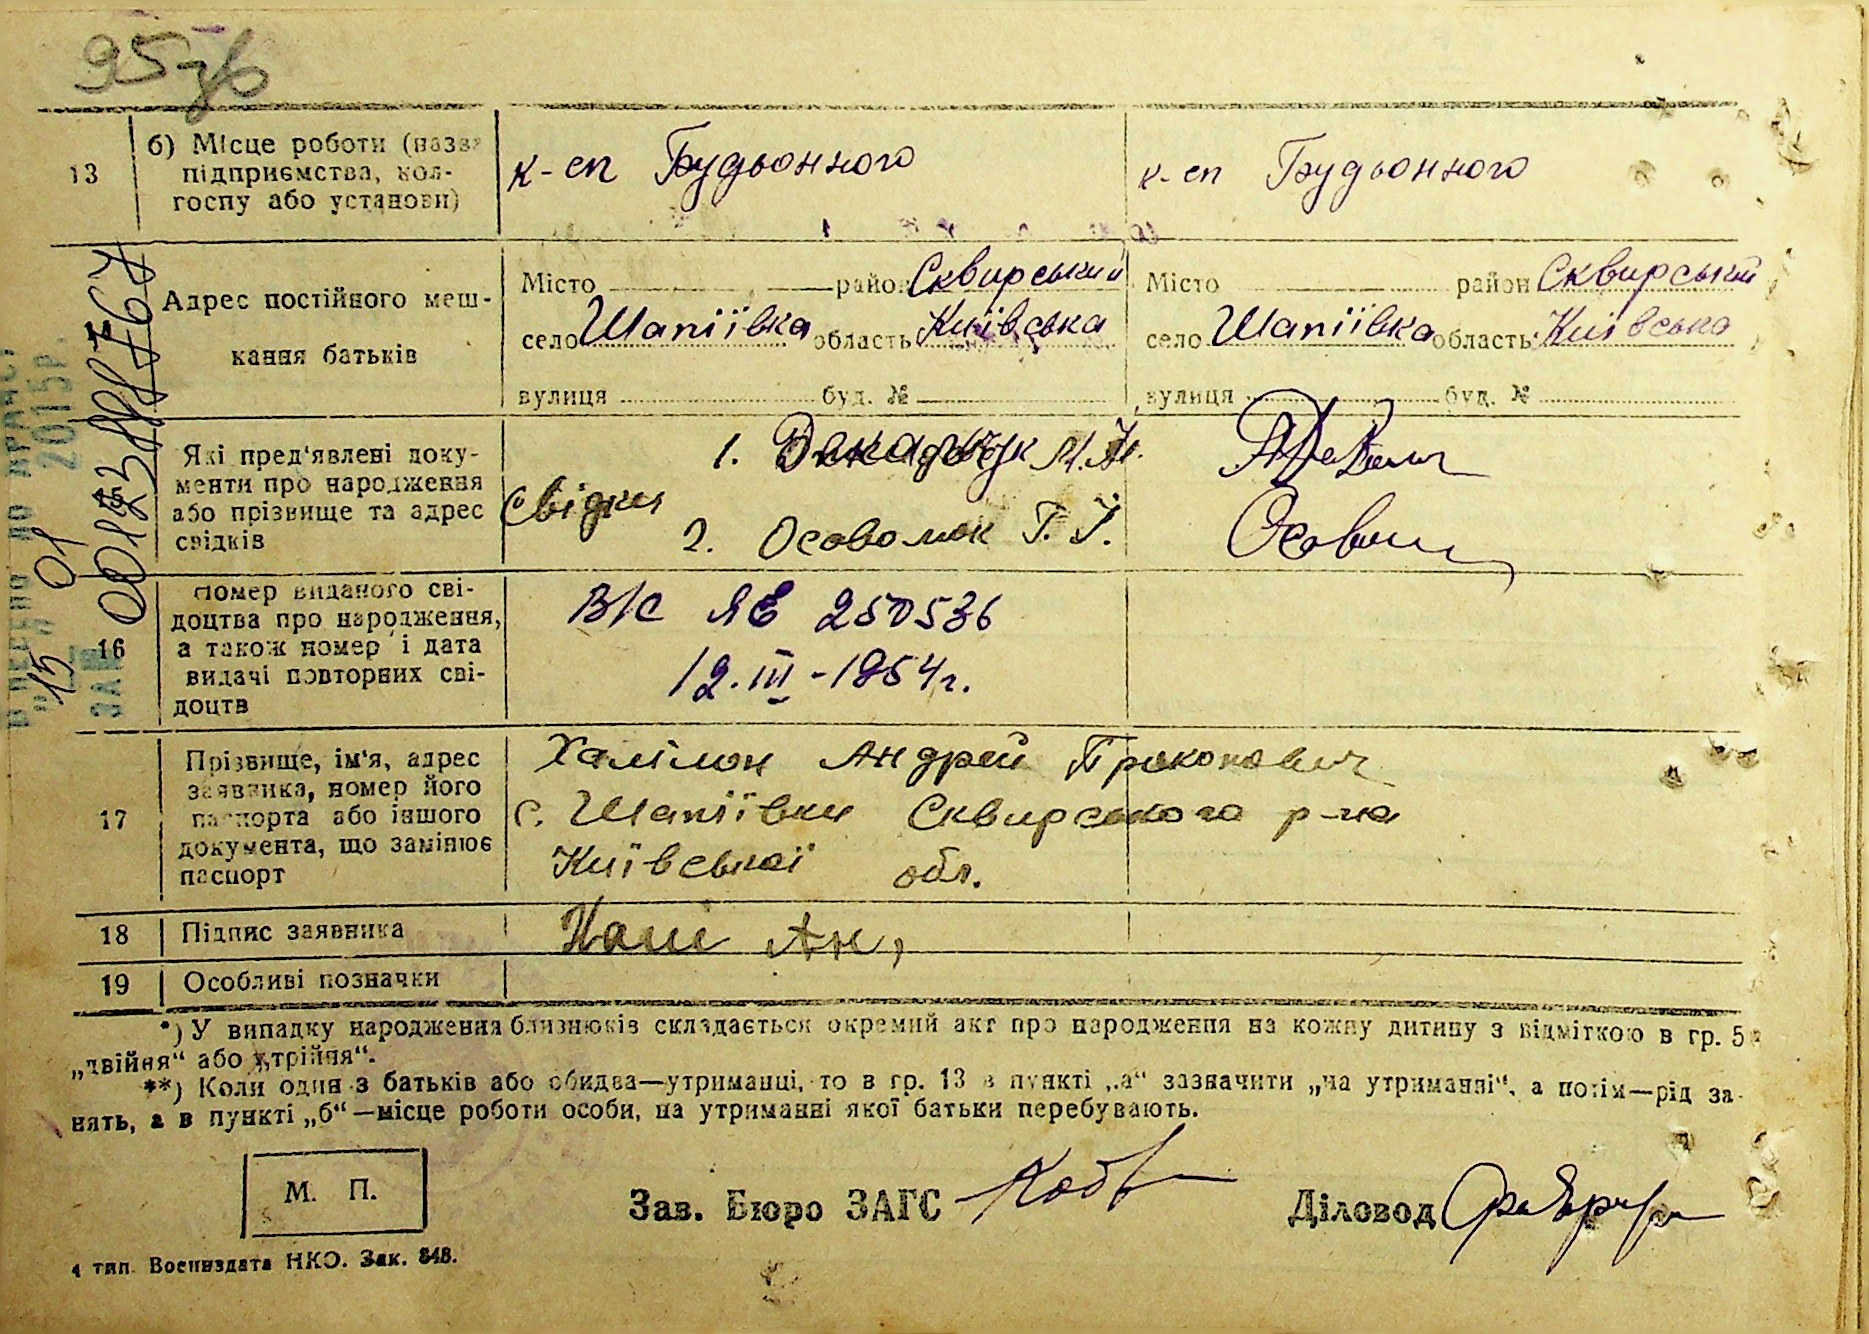 95 зв
13
б) Місце роботи (назва
підприємства, кол-
госпу або установи)
к-сп Будьонного
к-сп Будьонного
Адрес постійного меш-
кання батьків
Місто район Сквирський
село Шапіївка область Київська
вулиця буд. №
Місто район Сквирський
село Шапіївка область Київська
вулиця буд. №
Які пред'явлені доку-
менти про народження
або прізвище та адрес
свідків
Свідки
1.
2. Г. І.
16
Номер виданого сві-
доцтва про народження,
а також номер і дата
видачі повторних сві-
доцтв
В/с ЯЕ 250536
12.III-1954г.
17
Прізвище, ім'я, адрес
заявника, номер його
паспорта або іншого
документа, що замінює
паспорт
Халімон Андрей Прокопович
с. Шапіївки Сквирського р-на
Київської обл.
18
Підпис заявника
19
Особливі позначки
*) У випадку народження близнюків складається окремий акт про народження на кожну дитину з відміткою в гр. 5
„двійня“ або „трійня“.
**) Коли один з батьків або обидва—утриманці, то в гр. 13 в пункті „а“ зазначити „на утриманні“, а потім—рід за-
нять, а в пункті „б“—місце роботи особи, на утриманні якої батьки перебувають.
М. П.
Зав. Бюро ЗАГС
Діловод
4 тип. Воениздата НКО. Зак. 848.
2015р.